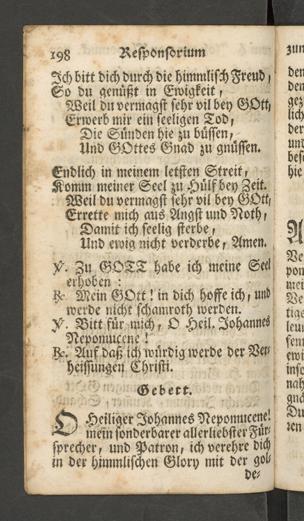 198 Responsorium
Ich bitt dich durch die himmlisch Freud,
So du genüßt in Ewigkeit,
Weil du vermagst sehr vil bey GOtt,
Erwerb mir ein seeligen Tod,
Die Sünden hie zu büssen,
Und GOttes Gnad zu gnüssen.
Endlich in meinem letsten Streit,
Komm meiner Seel zu Hülf bey Zeit.
Weil du vermagst sehr vil bey GOtt,
Errette mich aus Angst und Noth,
Damit ich seelig sterbe,
Und ewig nicht verderbe, Amen.
℣. Zu GOTT habe ich meine Seel
erhoben:
℟. Mein GOtt! in dich hoffe ich, und
werde nicht schamroth werden.
℣. Bitt für mich, O Heil. Johannes
Neponucene!
℟. Auf daß ich würdig werde der Ver-
heissungen Christi.
Gebett.
O Heiliger Johannes Neponucene!
mein sonderbarer allerliebster Für-
sprecher, und Patron, ich verehre dich
in der himmlischen Glory mit der gol-
de-